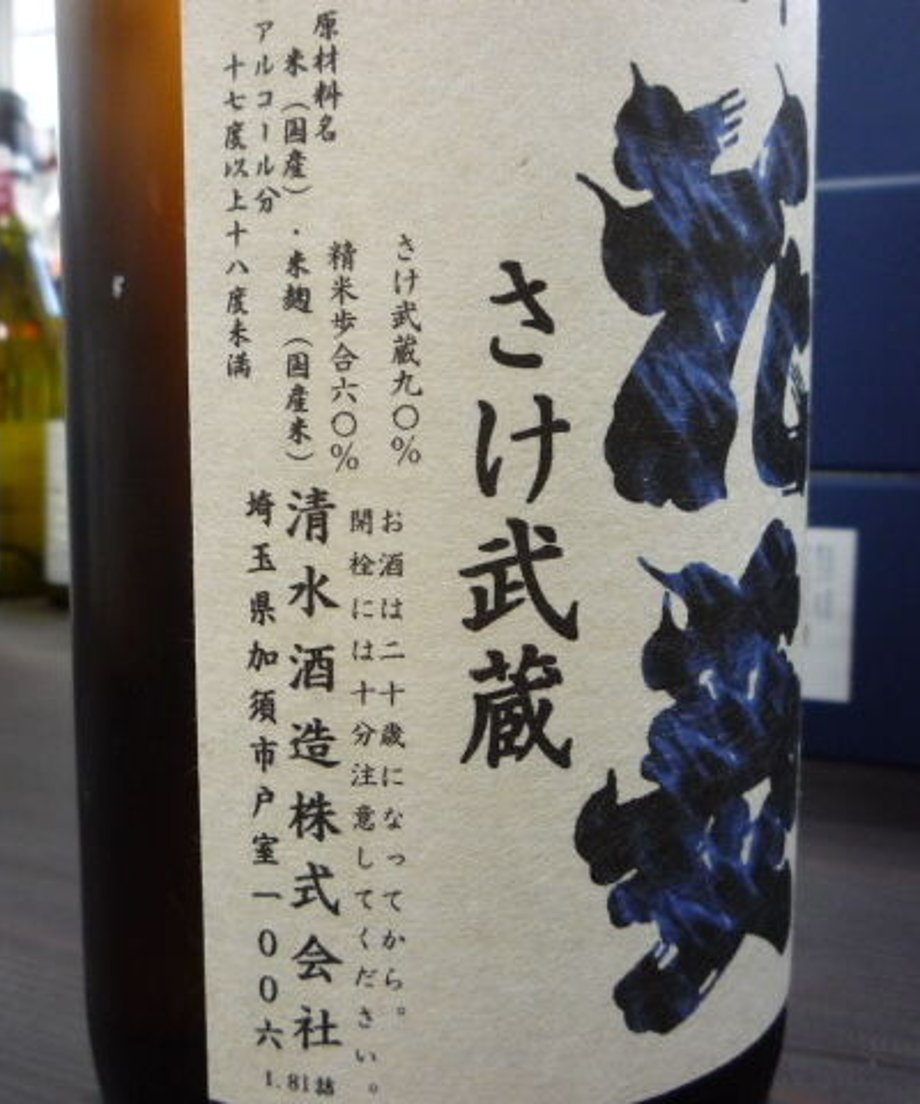 さけ武蔵
さけ武蔵九〇%
精米歩合六〇%
原材料名
米(国産)・米麹(国産米)
アルコール分
十七度以上十八度未満
お酒は二十歳になってから。
開栓には十分注意してください。
清水酒造株式会社
埼玉県加須市戸室一〇〇六
1.8l詰